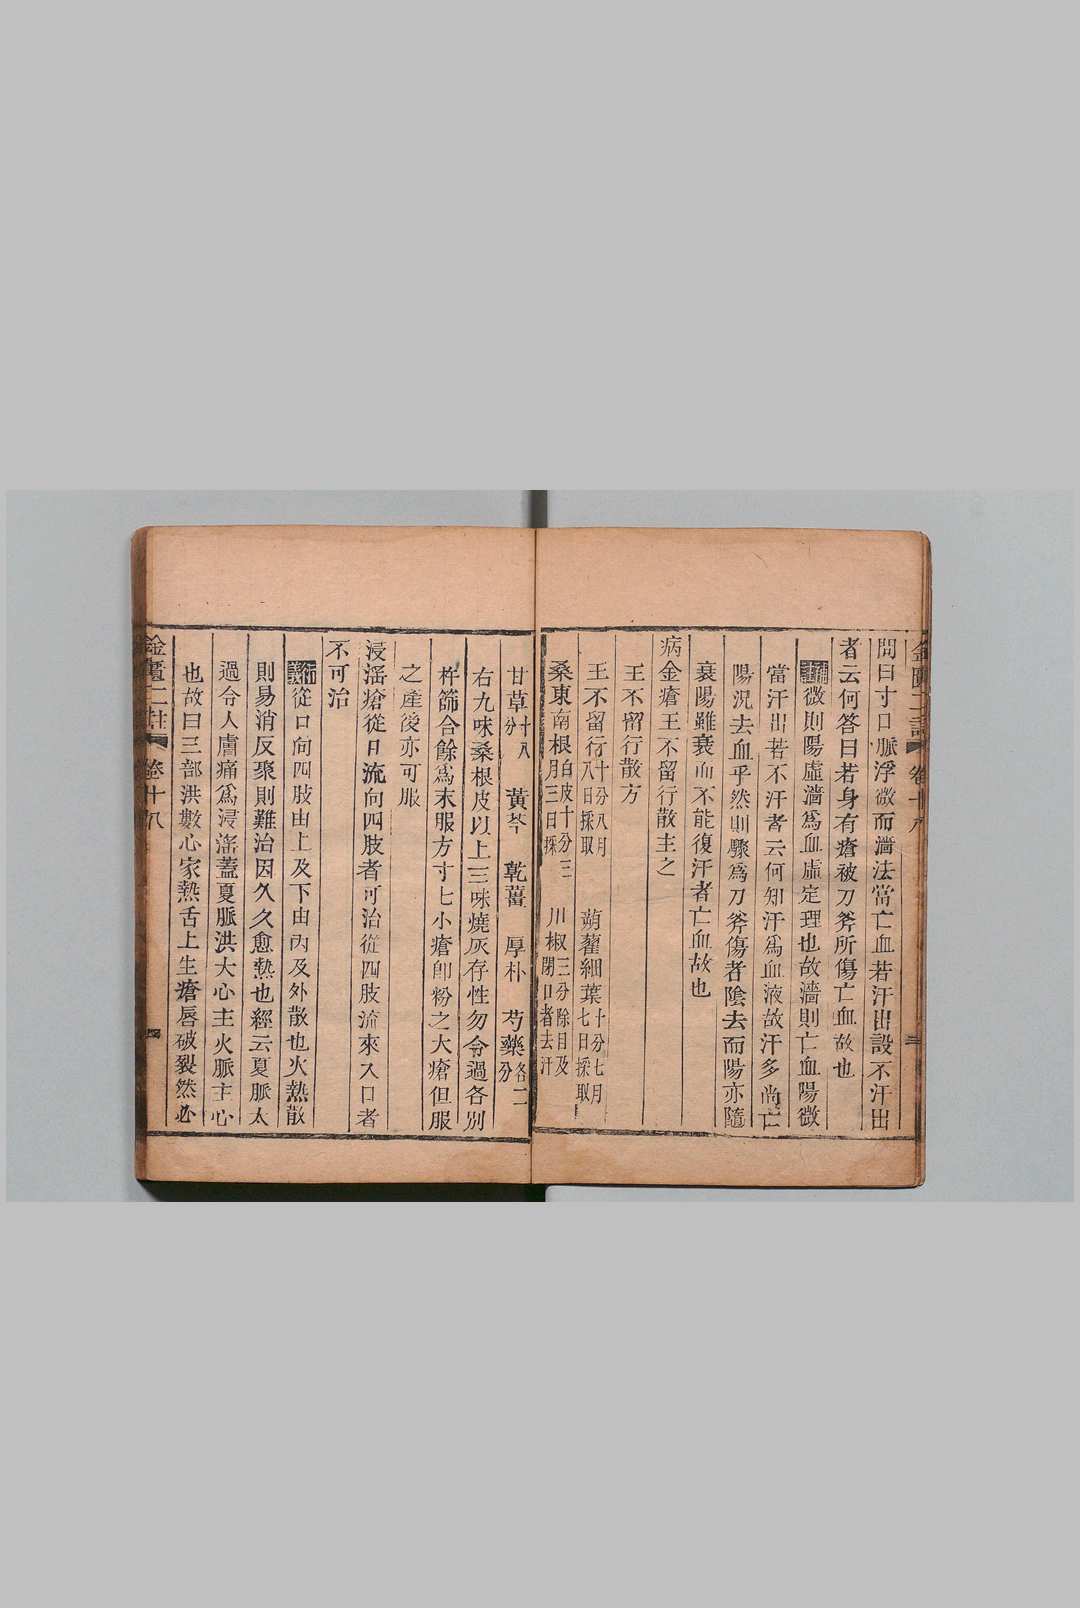 問曰寸口脈浮微而濇法當亡血若汗出設不汗出
者云何答曰若身有瘡被刀斧所傷亡血故也
補註微則陽虛濇爲血虛定理也故濇則亡血陽微
當汗出若不汗者云何知汗爲血液故汗多尚亡
陽況去血乎然則驟爲刀斧傷者陰去而陽亦隨
衰陽雖衰而不能復汗者亡血故也
病金瘡王不留行散主之
王不留行散方
王不留行十分八月八日採取 蒴藋細葉十分七月七日採取
桑東南根白皮十分三月三日採 川椒三分除目及閉口者去汗
甘草十八分 黃芩 乾薑 厚朴 芍藥各二分
右九味桑根皮以上三味燒灰存性勿令過各別
杵篩合餘爲末服方寸七小瘡卽粉之大瘡但服
之產後亦可服
浸淫瘡從口流向四肢者可治從四肢流來入口者
不可治
衍義從口向四肢由上及下由內及外散也火熱散
則易消反聚則難治因久久愈熱也經云夏脈太
過令人膚痛爲浸滛蓋夏脈洪大心主火脈主心
也故曰三部洪數心家熱舌上生瘡唇破裂然必
金匱二註 卷十八 四